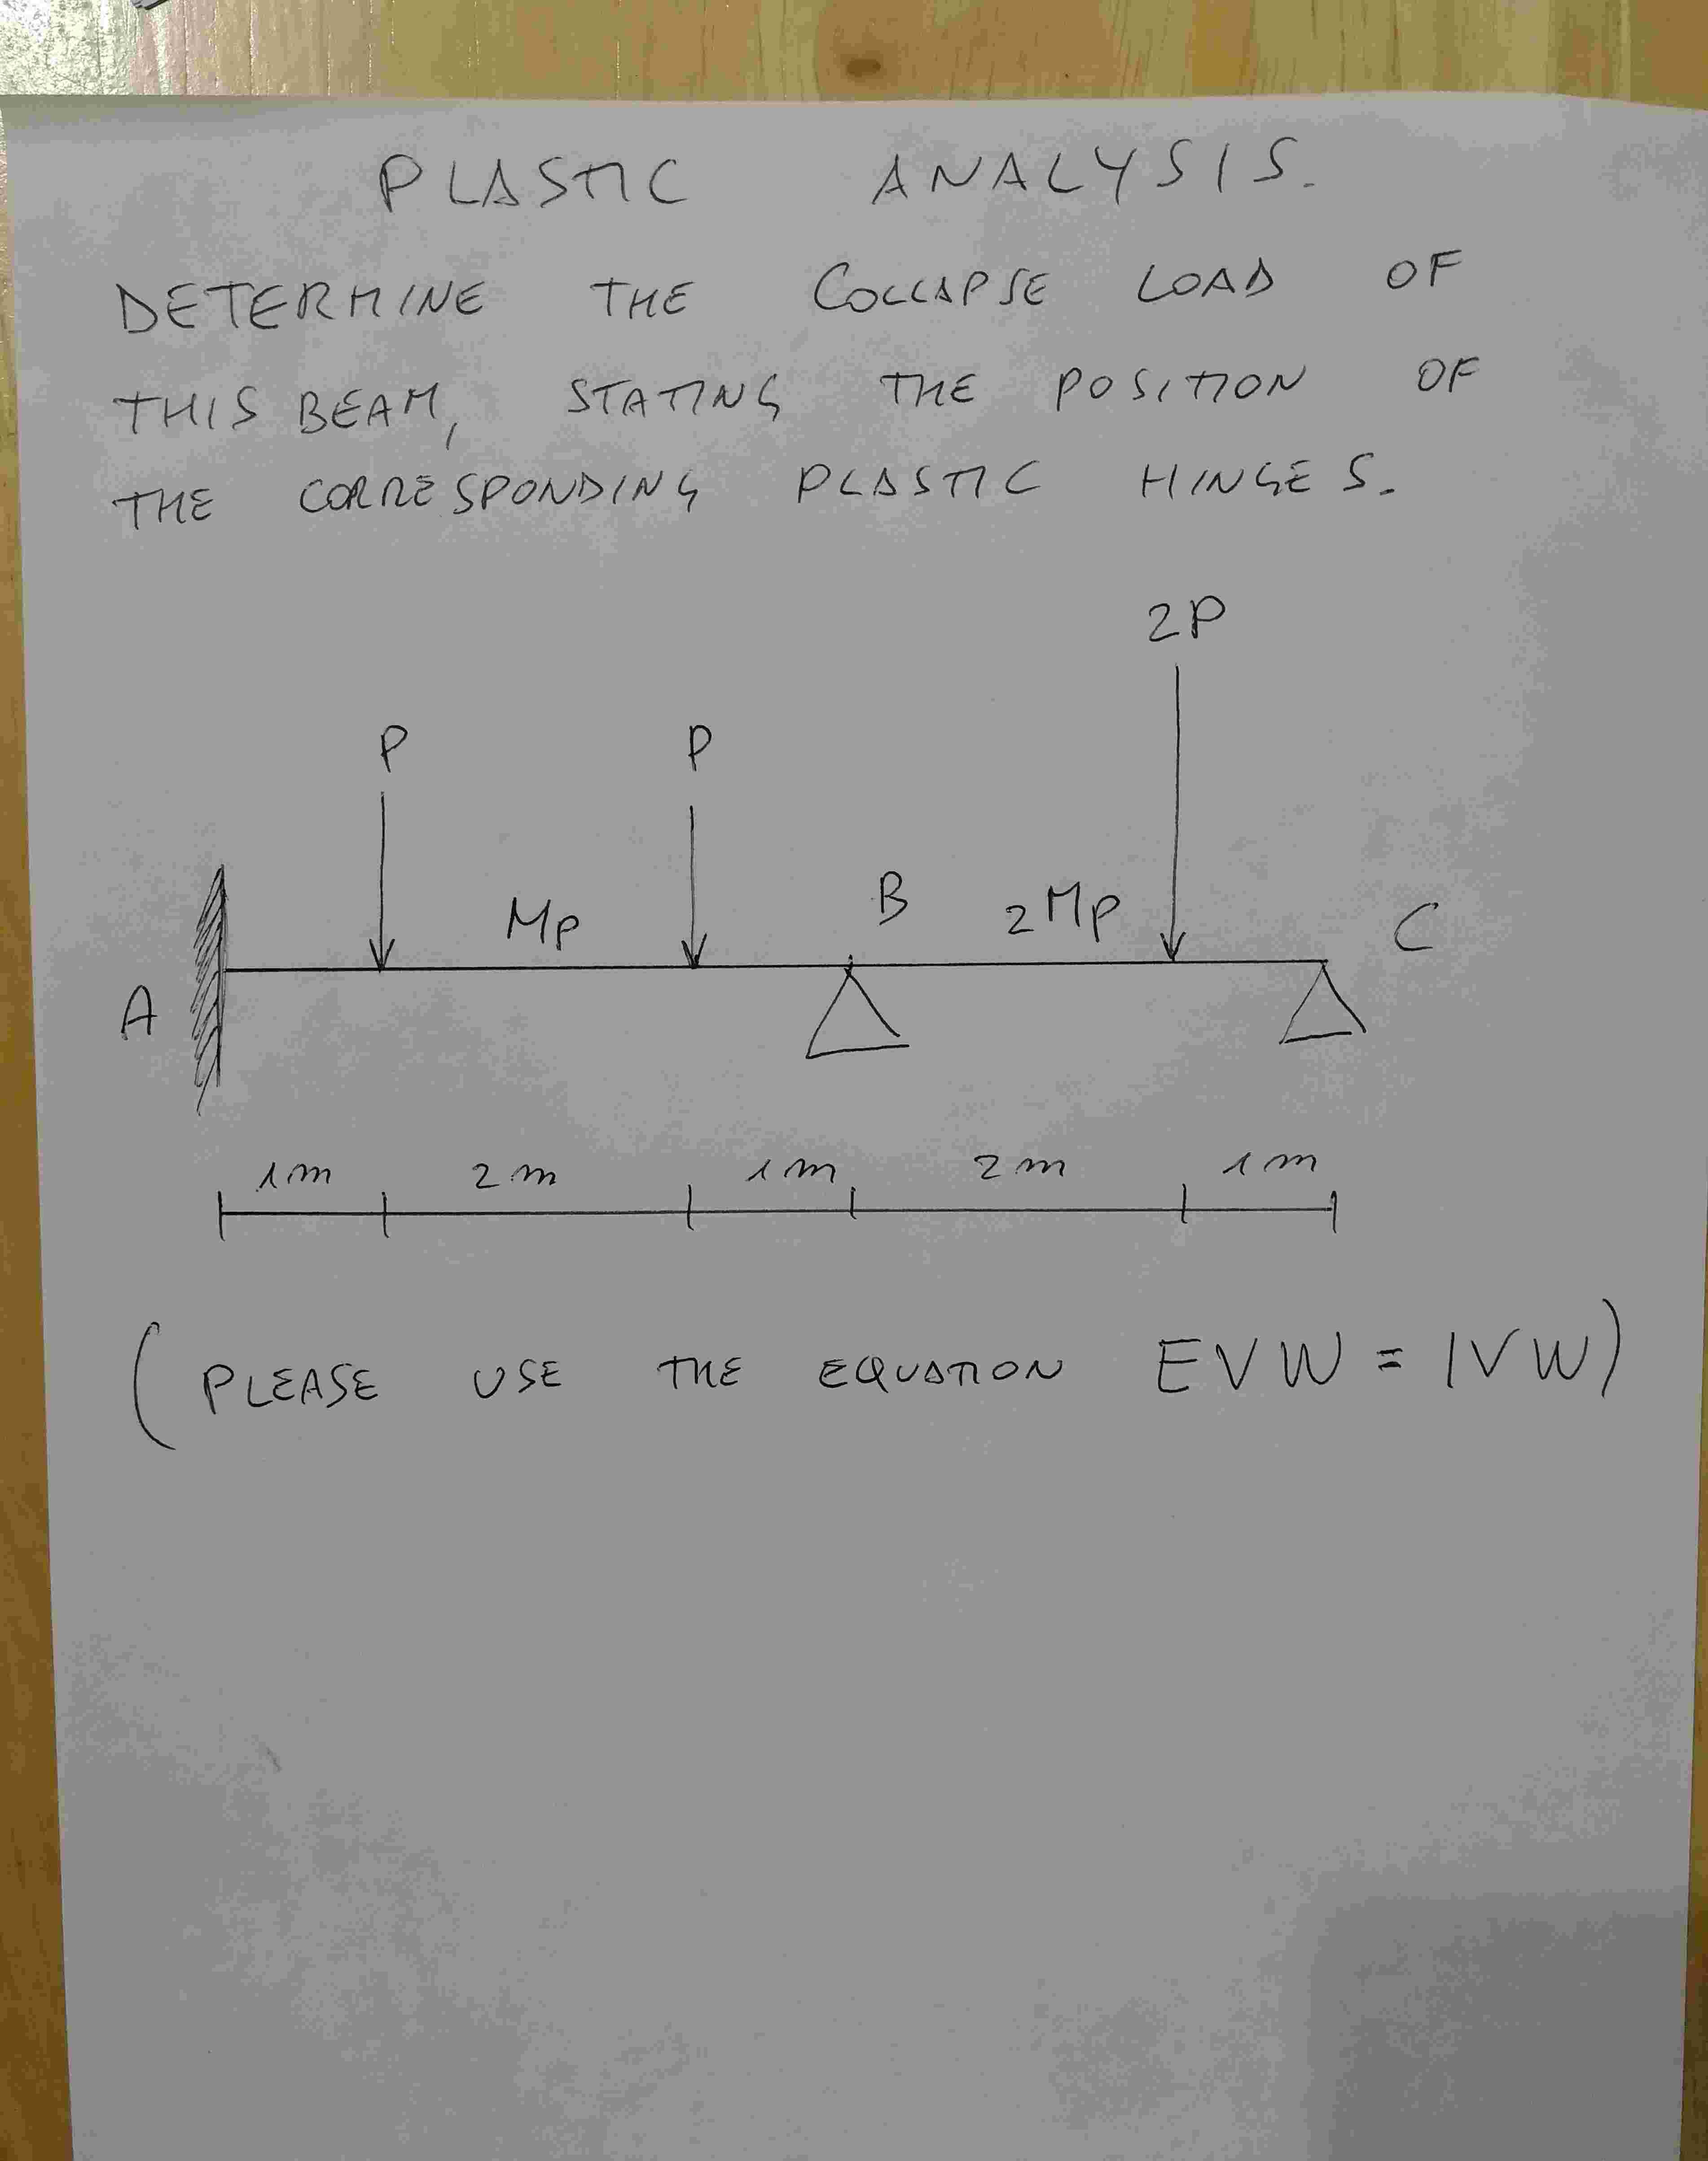 PLASTIC ANALYSIS.
DETERMINE THE COLLAPSE LOAD OF
THIS BEAM, STATING THE POSITION OF
THE CORRESPONDING PLASTIC HINGES.
2P
P P
Mp B 2Mp C
A
1m 2m 1m 2m 1m
(PLEASE USE THE EQUATION EVW = IVW)